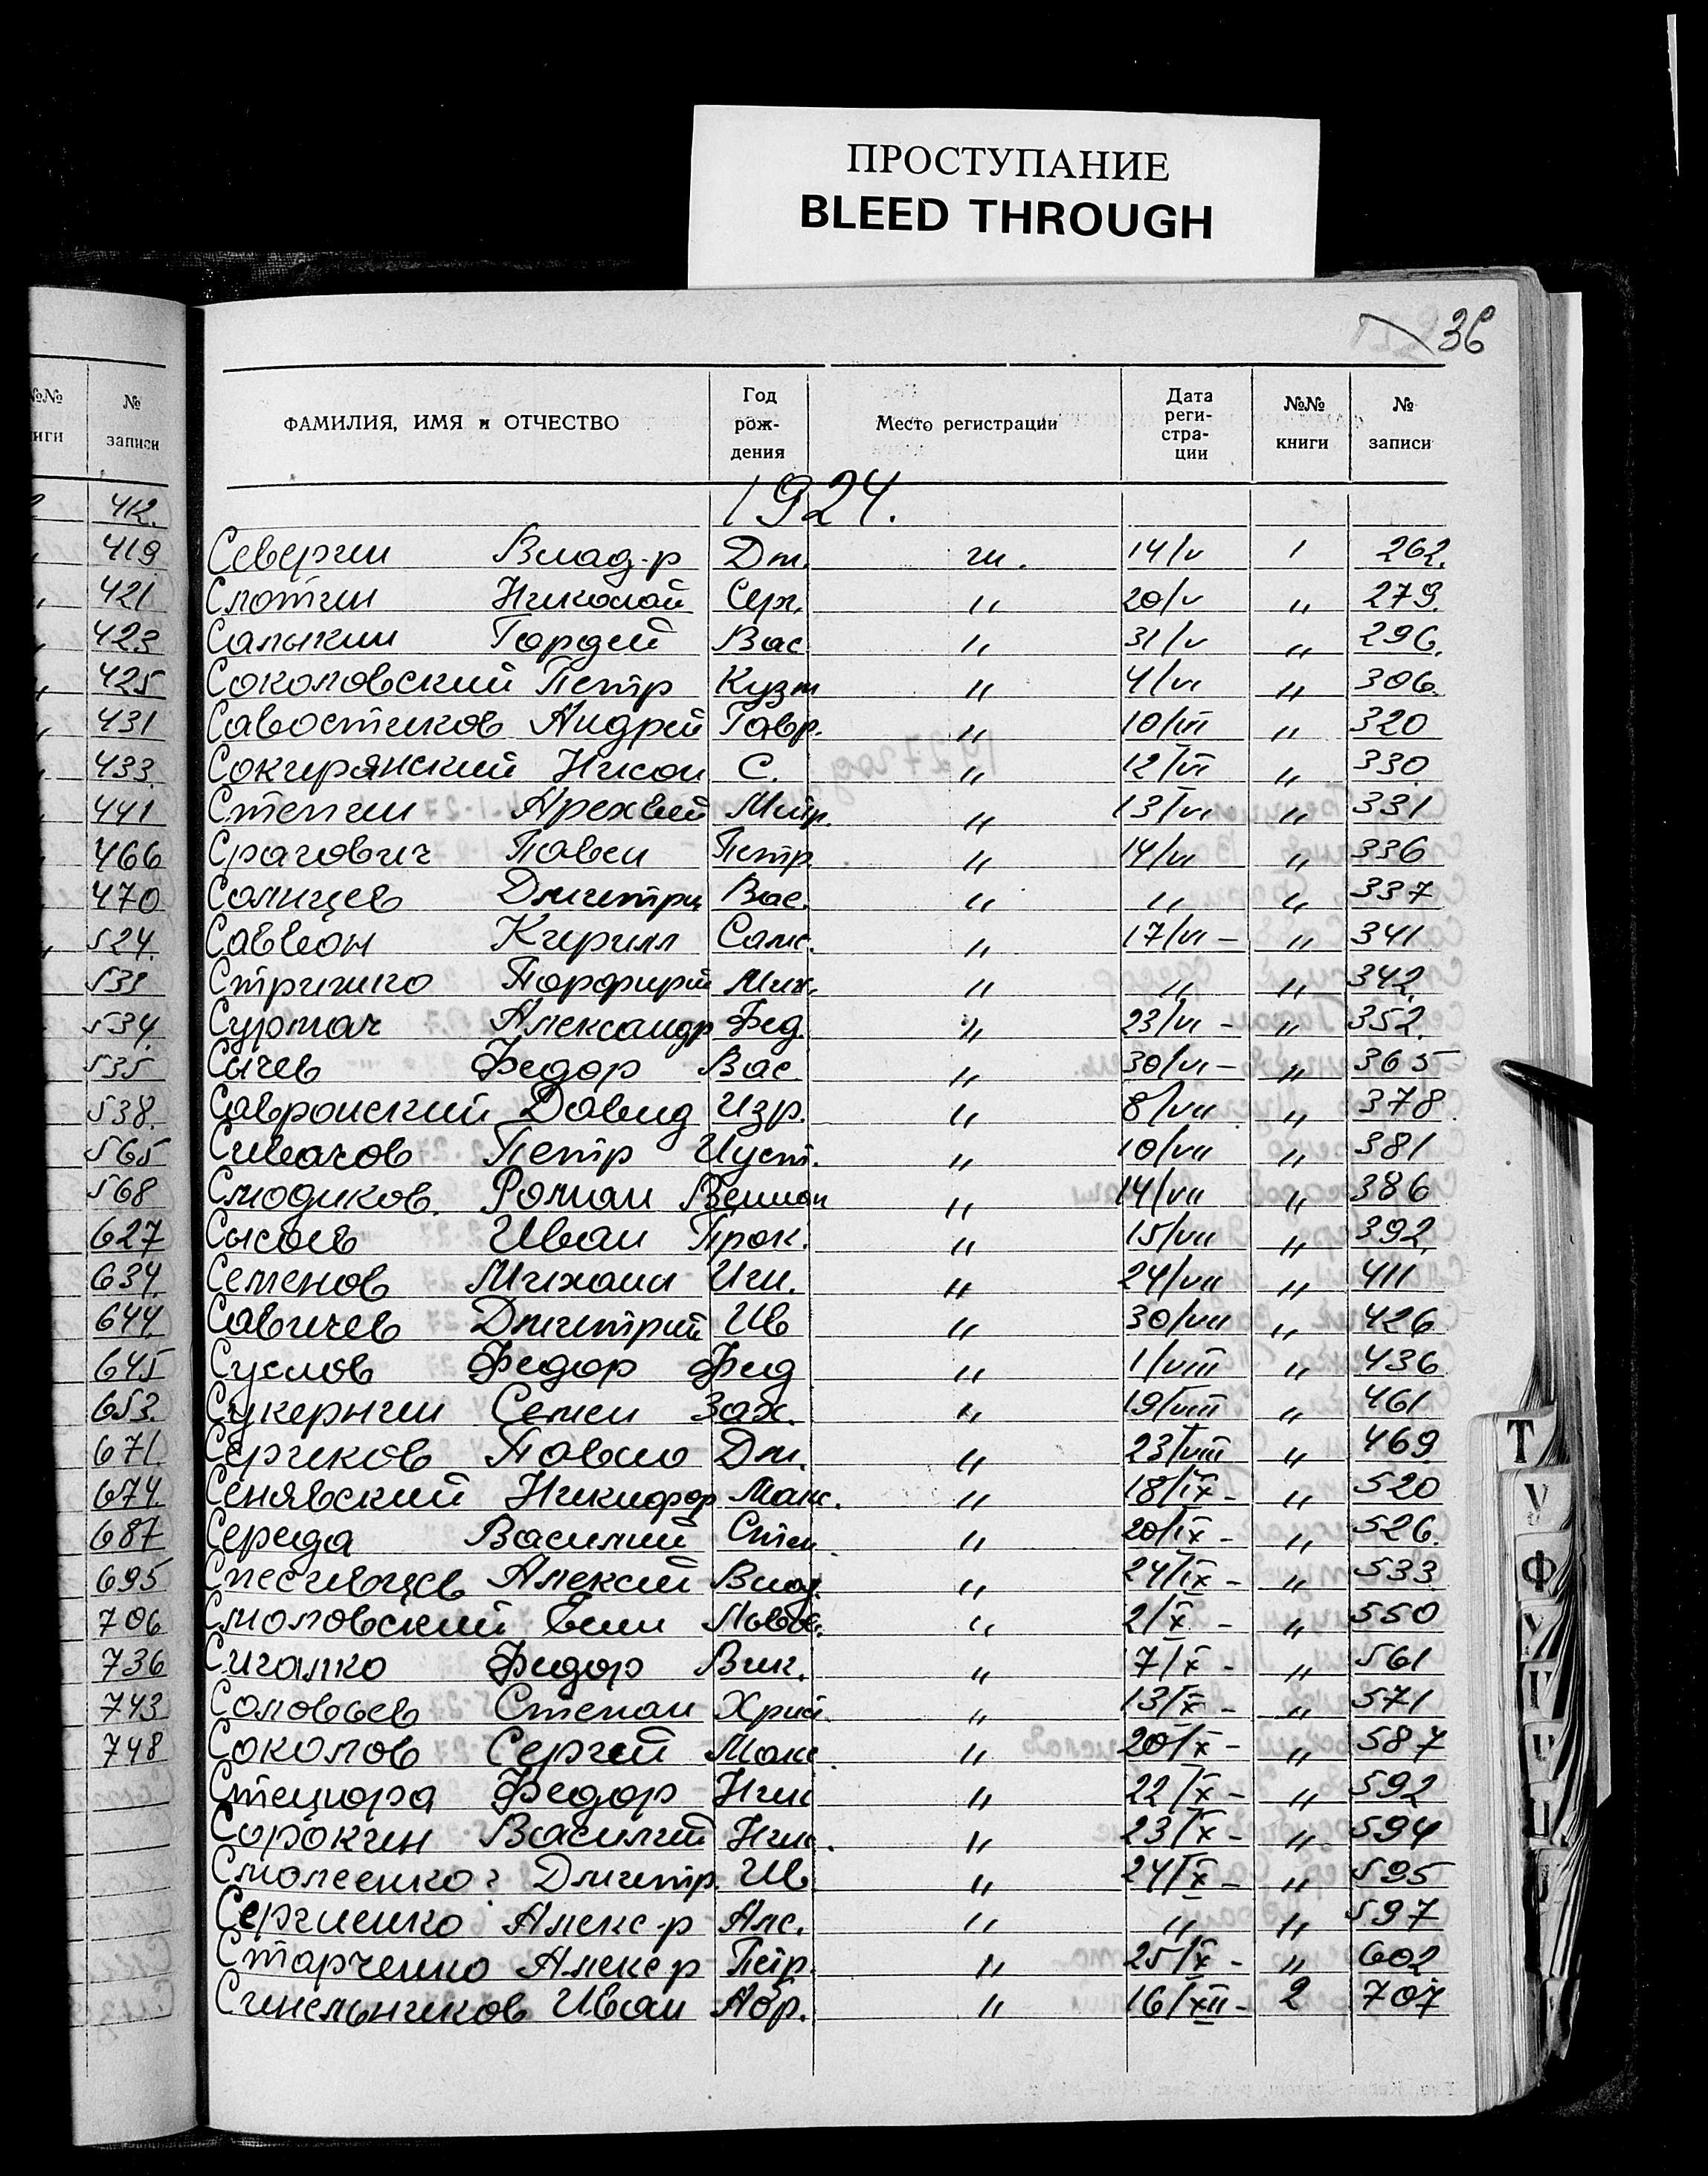 ПРОСТУПАНИЕ
BLEED THROUGH
36
№№ книги № записи
ФАМИЛИЯ, ИМЯ и ОТЧЕСТВО Год рождения Место регистрации Дата регистрации №№ книги № записи
412.
419
421
423
425
431
433
441
466
470
524.
531
534.
535
538.
565
568
627
634.
644.
645
653.
671.
674.
687
695
706
736
743
748
1924.
Северин Влад-р Дм. ги. 14/V 1 262.
Слотин Николай Серг. " 20/V " 279.
Салыкин Гордей Вас " 31/V " 296.
Соколовский Петр Кузм " 4/VI " 306.
Савостиков Андрей Гавр. " 10/VI " 320
Сокирянский Нисон С. " 12/VI " 330
Степин " 13/VI " 331
Срагович Павел Петр. " 14/VI " 336
Солнцев Дмитри Вас. " " " 337
Кирилл Сам. " 17/VI - " 341
Стрижко Порфирий Мих. " " " 342.
Сурмач Александр Фед. " 23/VI - " 352.
Сычев Федор Вас. " 30/VI - " 365
Савронский Давид Изр. " 8/VII " 378.
Сивачов Петр Иуст. " 10/VII " 381
Смодиков. Роман " 14/VII " 386
Сысоев Иван Прок. " 15/VII " 392.
Семенов Михаил Игн. " 24/VII " 411
Савичев Дмитрий Ив " 30/VII " 426
Суслов Федор Фед " 1/VIII " 436
Сукерник Семен Зах. " 19/VIII " 461
Сериков Павло Дм. " 23/VIII " 469
Сенявский Никифор Макс. " 18/IX - " 520
Середа Василий Степ. " 20/IX - " 526.
Спесивцев Алексей Влад. " 24/IX - " 533
Смоловский " 2/X - " 550
Сигалко Федор Вик. " 7/X - " 561
Соловьев Степан " 13/X - " 571
Соколов Сергей Макс. " 20/X - " 587
Стецюра Федор Ник " 22/X - " 592
Сорокин Василий Ник. " 23/X - " 594
Смолеенко? Дмитр. Ив. " 24/X - " 595
Сергиенко Алекс-р Алс. " " " 597
Старченко Алекс р Петр. " 25/X - " 602
Синельников Иван Абр. " 16/XII - 2 707
Т
У
Ф